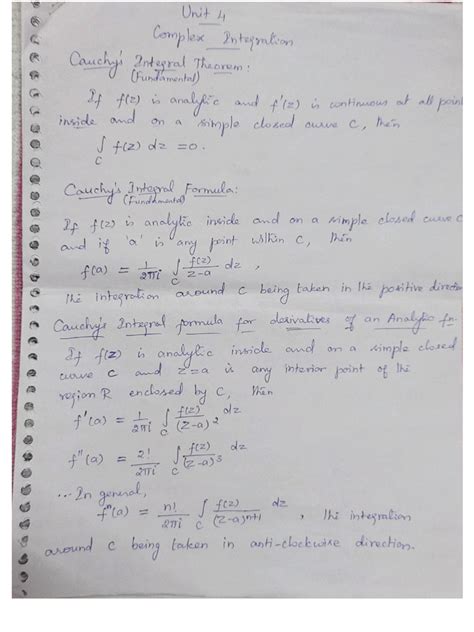 Unit 4
Complex Integration
Cauchy's Integral Theorem:
(Fundamental)
If f(z) is analytic and f'(z) is continuous at all point
inside and on a simple closed curve C, then
∫_C f(z) dz = 0.
Cauchy's Integral Formula:
(Fundamental)
If f(z) is analytic inside and on a simple closed curve C
and if 'a' is any point within C, then
f(a) = 1/2πi ∫_C f(z)/z-a dz ,
the integration around C being taken in the positive direction
Cauchy's Integral formula for derivatives of an Analytic fn
If f(z) is analytic inside and on a simple closed
curve C and z=a is any interior point of the
region R enclosed by C, then
f'(a) = 1/2πi ∫_C f(z)/(z-a)^2 dz
f''(a) = 2!/2πi ∫_C f(z)/(z-a)^3 dz
... In general,
f^n(a) = n!/2πi ∫_C f(z)/(z-a)^n+1 dz , the integration
around C being taken in anti-clockwise direction.